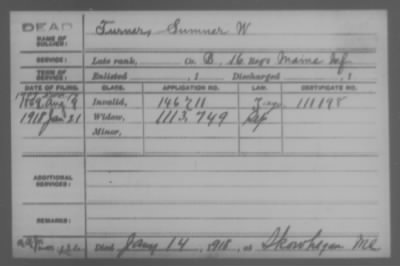 DEAD
NAME OF SOLDIER: Turner, Sumner W
SERVICE: Late rank, Co. B, 16 Reg't Maine Inf
TERM OF SERVICE: Enlisted , 1 Discharged , 1
DATE OF FILING. CLASS. APPLICATION NO. LAW. CERTIFICATE NO.
1869 Aug 9 Invalid, 146211 111198
1918 Jan 21 Widow, 1113,749
Minor,
ADDITIONAL SERVICES:
REMARKS:
Died Jany 14, 1918, at Skowhegan Me